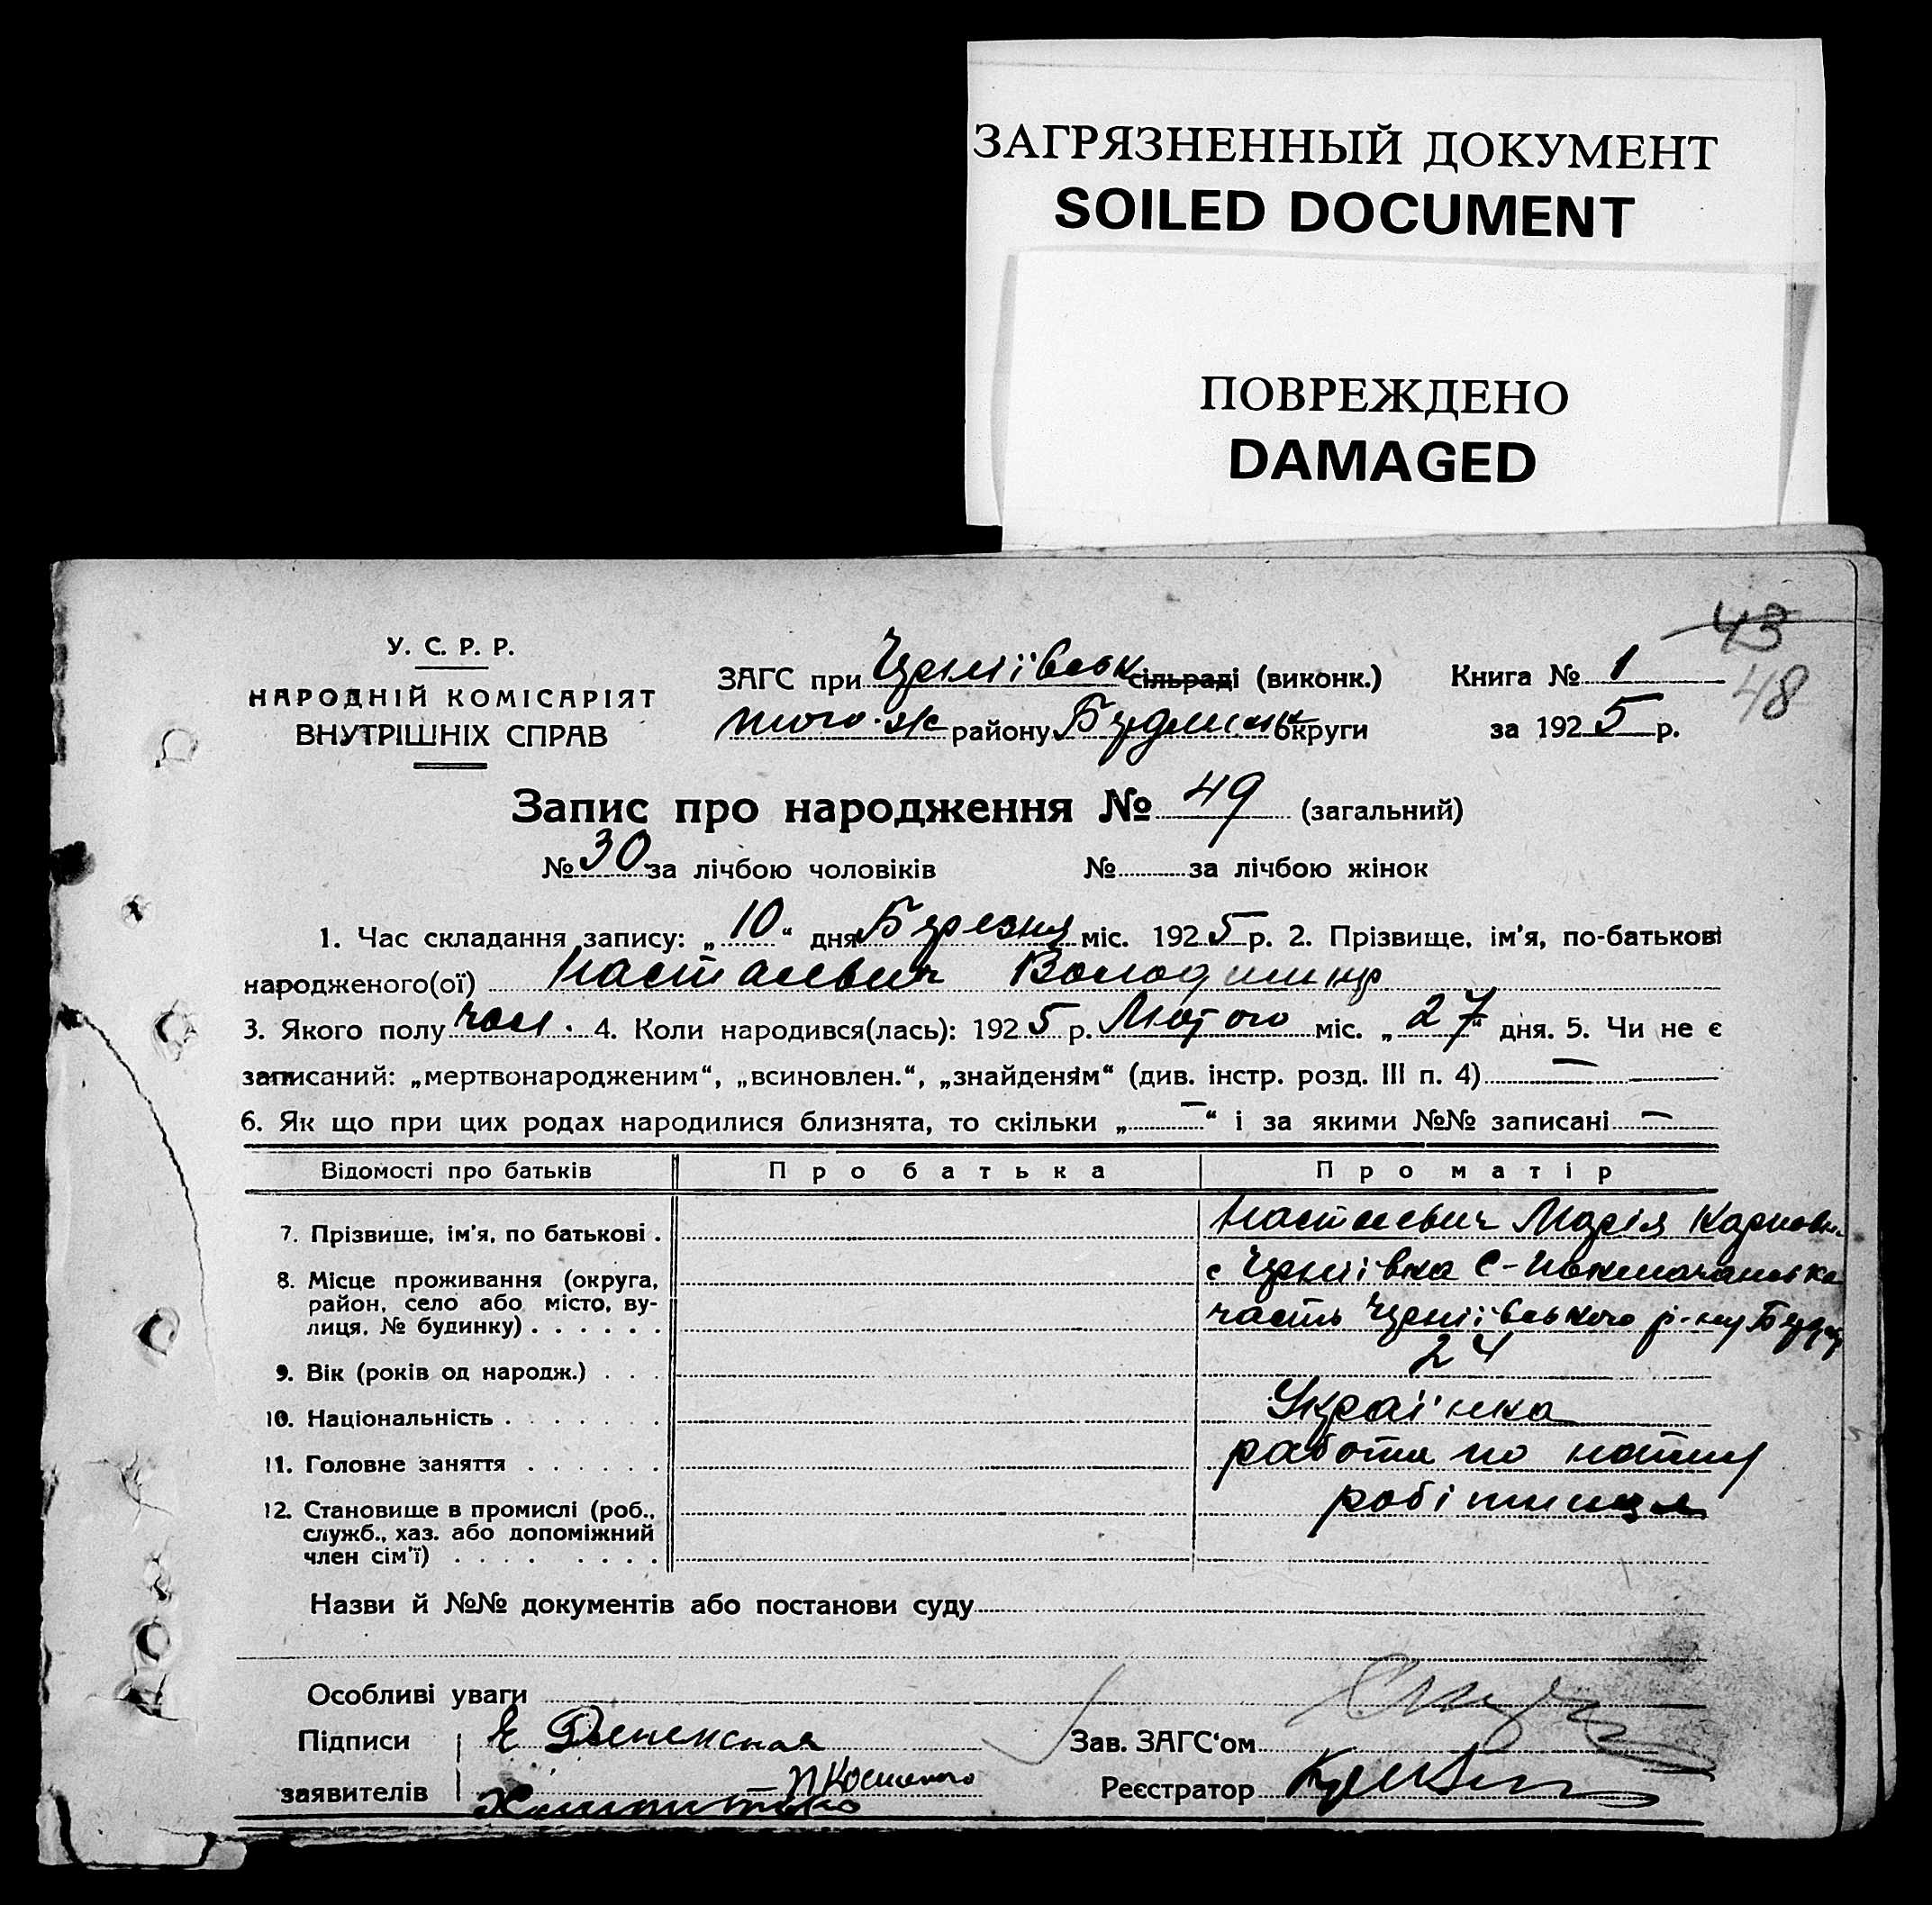 ЗАГРЯЗНЕННЫЙ ДОКУМЕНТ
SOILED DOCUMENT
ПОВРЕЖДЕНО
DAMAGED
43
48
У. С. Р. Р.
НАРОДНІЙ КОМІСАРІЯТ
ВНУТРІШНІХ СПРАВ
ЗАГС при сільраді (виконк.) Книга № 1
того-ж району округи за 1925 р.
Запис про народження № 49 (загальний)
№ 30 за лічбою чоловіків № за лічбою жінок
1. Час складання запису: „10“ дня Березня міс. 1925 р. 2. Прізвище, ім'я, по-батькові
народженого(ої) Настасевич Володимир
3. Якого полу чол. 4. Коли народився(лась): 1925 р. Лютого міс. „27“ дня. 5. Чи не є
записаний: „мертвонародженим“, „всиновлен.“, „знайденям“ (див. інстр. розд. III п. 4) —
6. Як що при цих родах народилися близнята, то скільки „—“ і за якими №№ записані —
Відомості про батьків Про батька Про матір
7. Прізвище, ім'я, по батькові . Настасевич Марія
8. Місце проживання (округа,
район, село або місто, ву-
лиця, № будинку) . . . . . . часть
9. Вік (років од народж.) . . . 24
10. Національність . . . . . . . Українка
11. Головне заняття . . . . . . работа по найму
12. Становище в промислі (роб., робітниця
служб., хаз. або допоміжний
член сім'ї) . . . . . . . .
Назви й №№ документів або постанови суду
Особливі уваги
Підписи Зав. ЗАГС'ом
заявителів Реєстратор